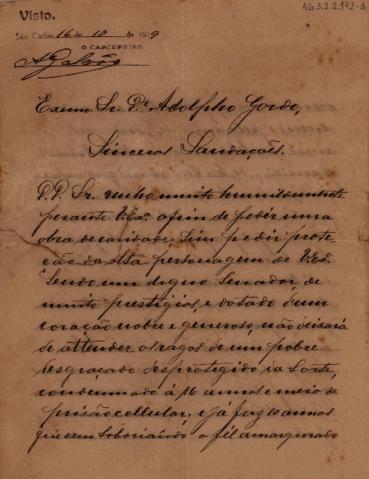 AG 3.2.2.192-d
Visto.
São Carlos, 16 de 10 de 1919
O CARCEREIRO
A Galvão
Exmo. Sr. Dr. Adolpho Gordo,
Sinceras Saudações.
P.P. Sr. venho muito humildemente
perante V.Exa. afim de pedir uma
obra de caridade, sim pedir prote
ção da alta personagem de V.Exa.
Sendo um digno Senador, de
muito prestigio, e dotado d'um
coração nobre e generoso, não deixará
de attender os rogos de um pobre
desgraçado desprotegido da Sorte,
condemnado á 16 annos e meio de
prisão cellular, e já faz 10 annos
que vem saboriando o fél amargurado